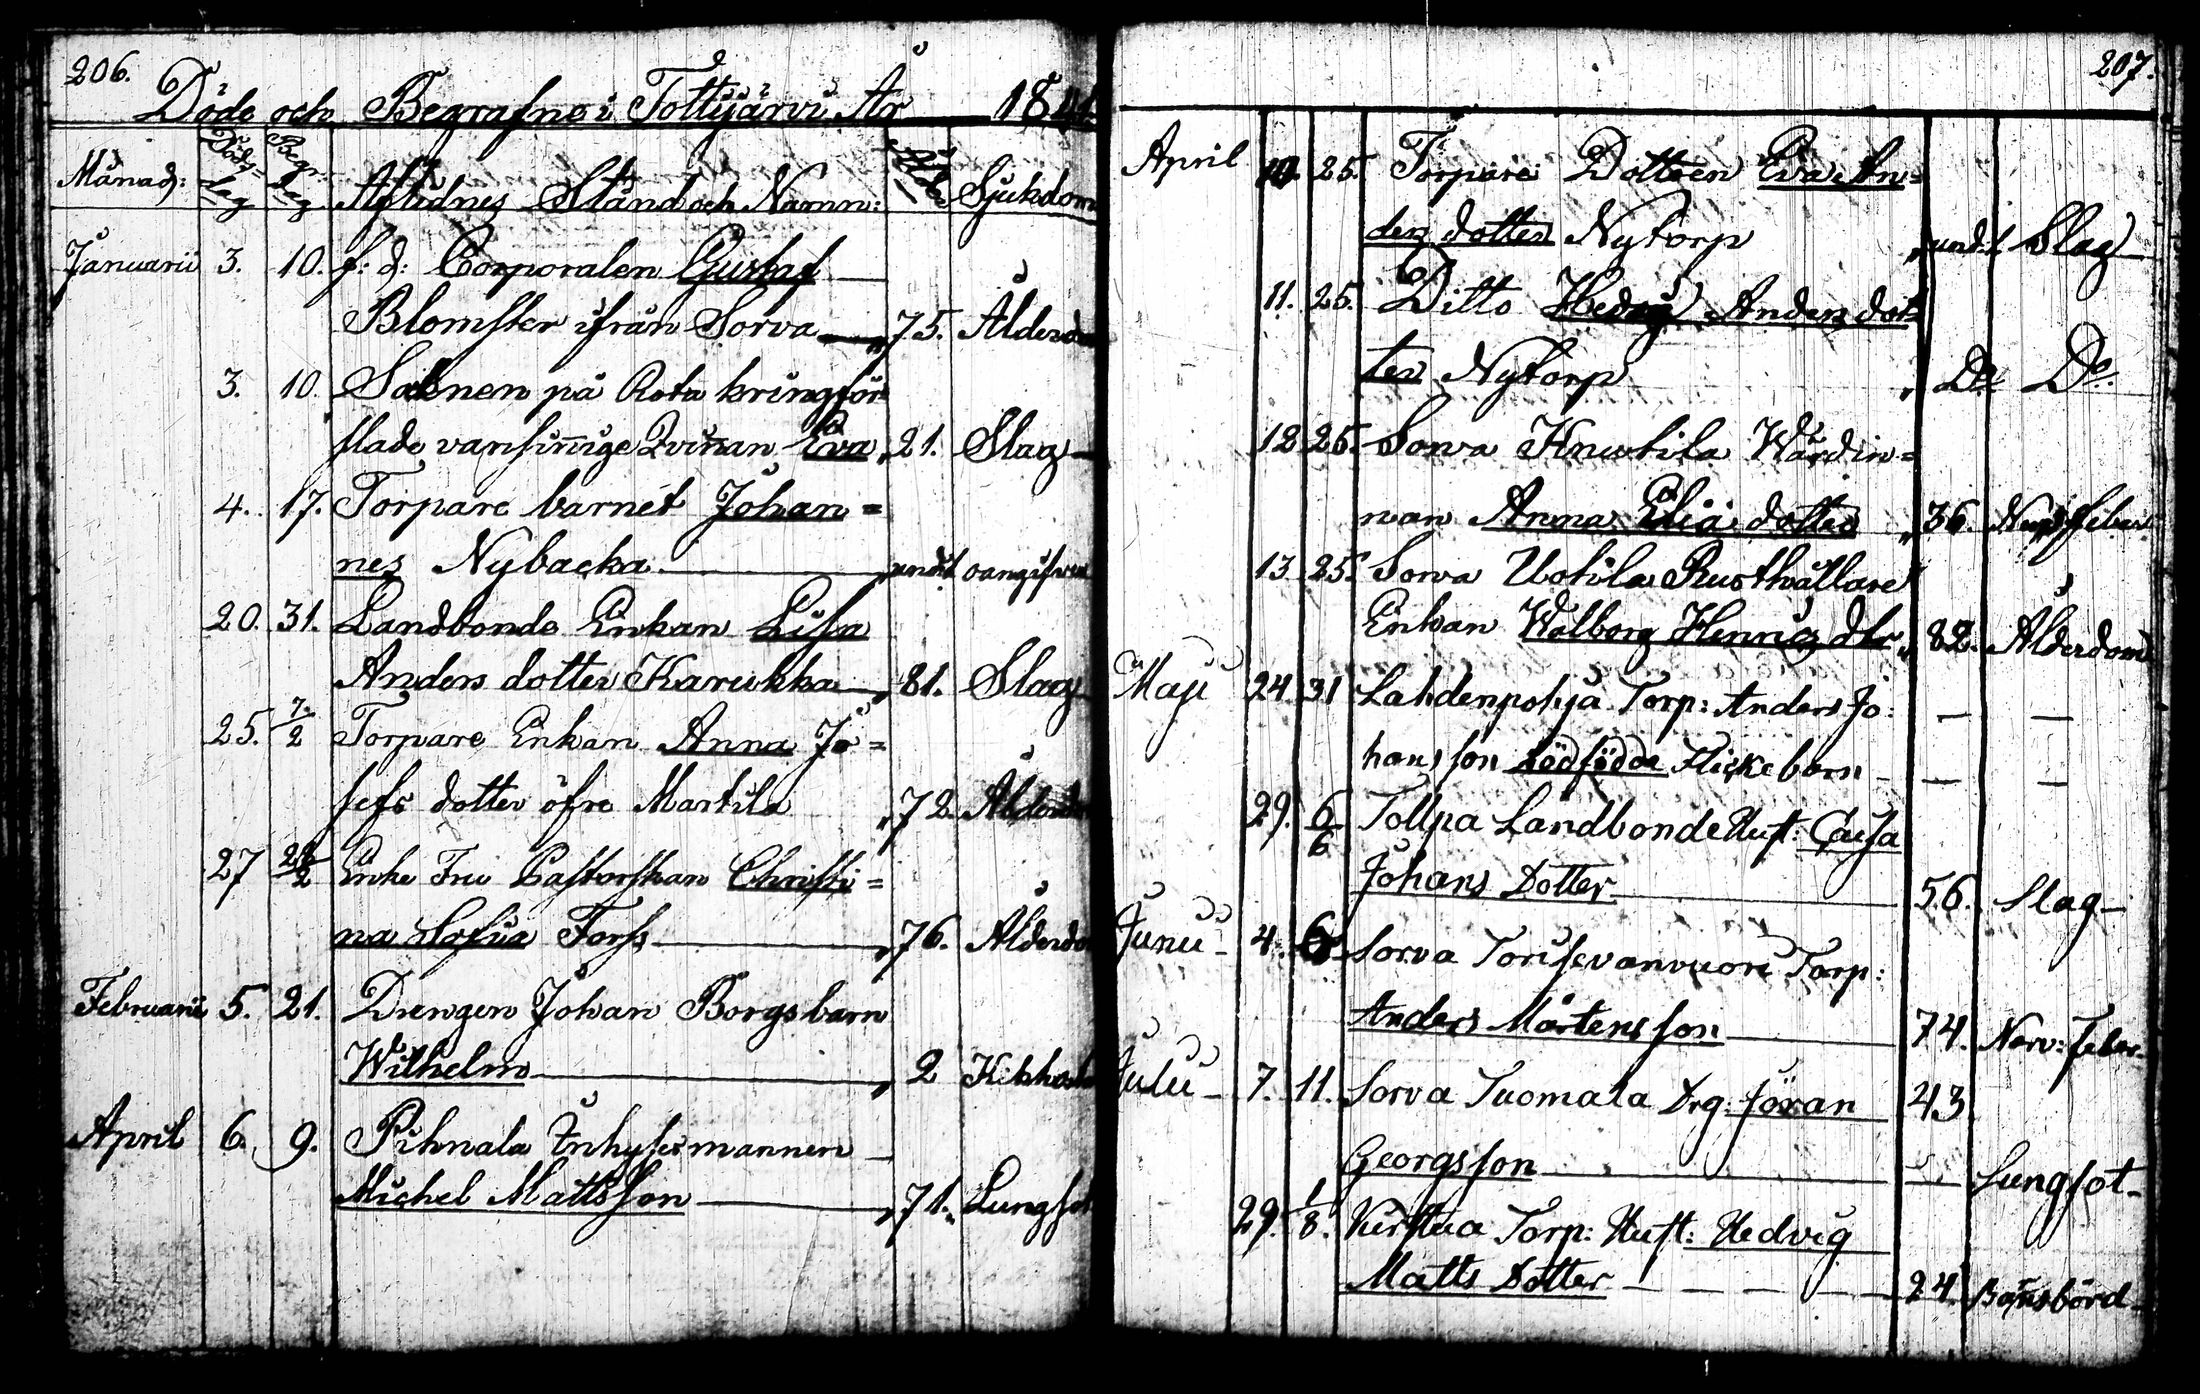 206.
Döde och Begrafne i Tottijärvi År 1841.
Månad: Döds-dag Begr: dag Aflidnes Stånd och Namn: Ålder Sjukdom
Januarii 3. 10. f: d: Corporalen Gustaf
Blomster ifrån Sorva 75. Ålderdom
3. 10. på Rota kringför
slade vansinnige Qvinnan Eva 21. Slag
4. 17. Torpare barnet Johan=
nes Nybacka undt oangifven
20. 31. Landbonde Enkan Lisa
Anders dotter Karukka 81. Slag
25. 7/2 Torpare Enkan Anna Jo=
sefs dotter öfre Marttila 72. Ålderdom
27 Enke Fru Pastorskan Christi=
na Sofia Forss 76. Ålderdo
Februarii 5. 21. Drengen Johan Borgs barn
Wilhelm 2 Kikhosta
April 6. 9. Pihnala Inhysesmannen
Michel Mattsson 71. Lungsot
207.
April 10. 25. Torpare Dottren Eva An=
ders dotter Nytorp und: 1 Slag
11. 25. Ditto Hedvig Anders dot
ter Nytorp Do Do.
12 25. Sorva Knuutila Wärdin=
nan Anna Eliæ dotter 36. Nervfeber
13 25. Sorva Uotila Rusthållare
Enkan Walborg Henrics dtr 82. Ålderdom
Maji 24. 31 Lahdenpohja Torp: Anders Jo:
hansson dödfödda Flickebarn
29. 6/6 Tollpa Landbonde Hust: Cajsa
Johans Dotter 56. Slag
Junii 4. 6 Sorva Torisevanvuori Torp:
Anders Mårtensson 74. Nerv: feber
Julii 7. 11. Sorva Tuomala Drg: Jöran 43
Georgsson Lungsot
29. 1/8. Torp: Hust: Hedvig
Matts Dotter 24. Barnsbörd